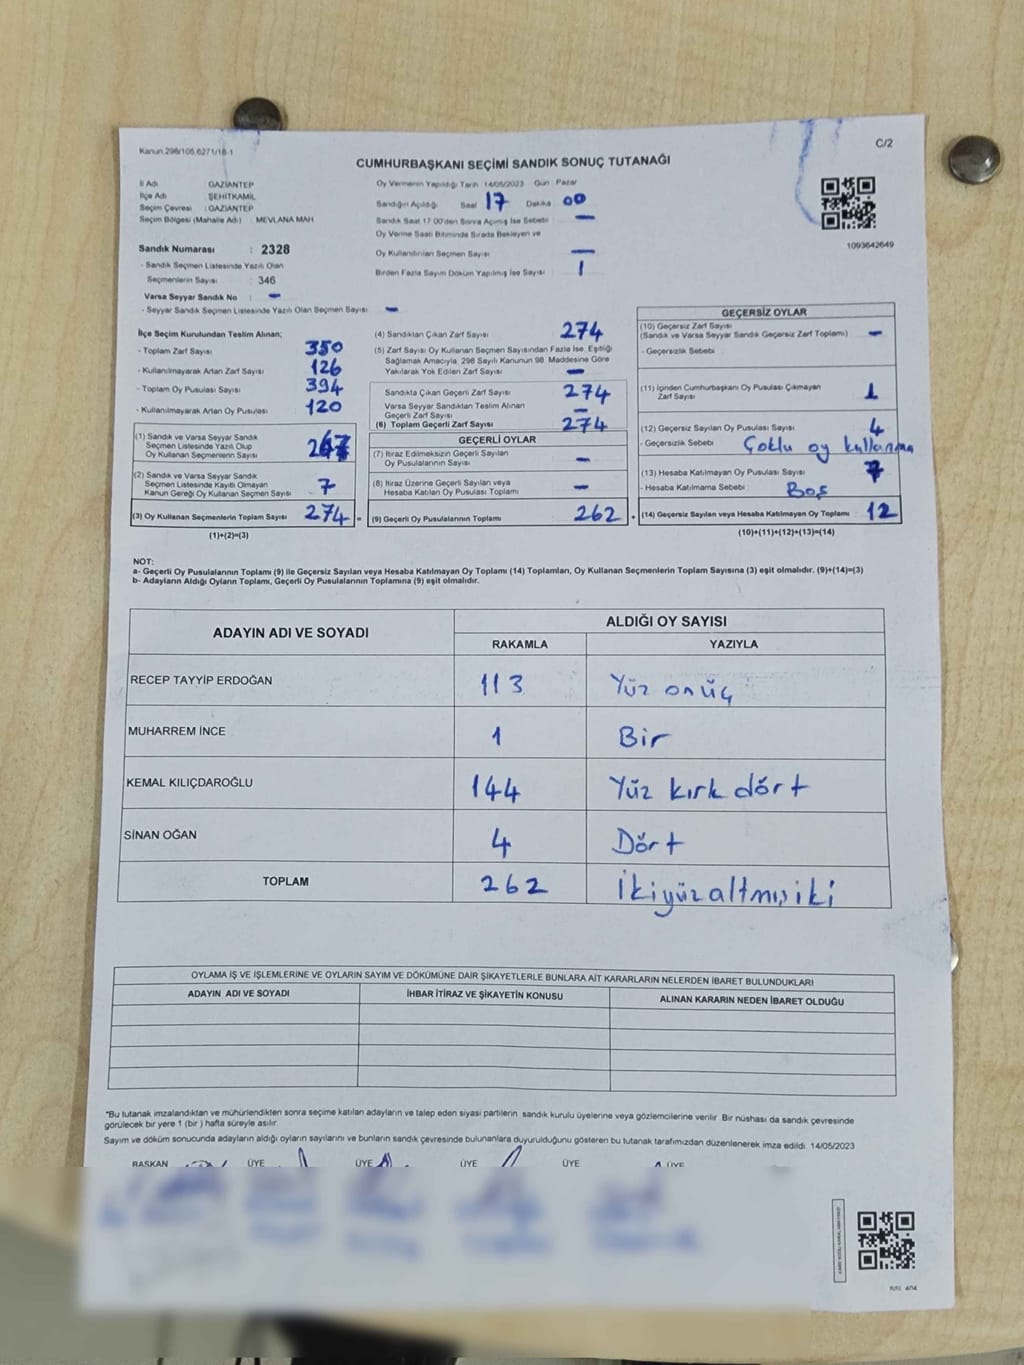 Kanun 298/105.6271/18-1
C/2
CUMHURBAŞKANI SEÇİMİ SANDIK SONUÇ TUTANAĞI
İl Adı GAZİANTEP
İlçe Adı ŞEHİTKAMİL
Seçim Çevresi : GAZİANTEP
Seçim Bölgesi (Mahalle Adı) : MEVLANA MAH.
Sandık Numarası : 2328
- Sandık Seçmen Listesinde Yazılı Olan
Seçmenlerin Sayısı : 346
Varsa Seyyar Sandık No : -
- Seyyar Sandık Seçmen Listesinde Yazılı Olan Seçmen Sayısı : -
Oy Vermenin Yapıldığı Tarih 14/05/2023 Gün : Pazar
Sandığın Açıldığı Saat 17 Dakika 00
Sandık Saat 17.00'den Sonra Açılmış İse Sebebi -
Oy Verme Saati Bitiminde Sırada Bekleyen ve
Oy Kullandırılan Seçmen Sayısı -
Birden Fazla Sayım Döküm Yapılmış İse Sayısı 1
1093642649
İlçe Seçim Kurulundan Teslim Alınan;
- Toplam Zarf Sayısı 350
- Kullanılmayarak Artan Zarf Sayısı 126
- Toplam Oy Pusulası Sayısı 394
- Kullanılmayarak Artan Oy Pusulası 120
(1) Sandık ve Varsa Seyyar Sandık
Seçmen Listesinde Yazılı Olup
Oy Kullanan Seçmenlerin Sayısı 267
(2) Sandık ve Varsa Seyyar Sandık
Seçmen Listesinde Kayıtlı Olmayan
Kanun Gereği Oy Kullanan Seçmen Sayısı 7
(3) Oy Kullanan Seçmenlerin Toplam Sayısı 274 =
(1)+(2)=(3)
(4) Sandıktan Çıkan Zarf Sayısı 274
(5) Zarf Sayısı Oy Kullanan Seçmen Sayısından Fazla İse, Eşitliği
Sağlamak Amacıyla, 298 Sayılı Kanunun 98. Maddesine Göre
Yakılarak Yok Edilen Zarf Sayısı -
Sandıkta Çıkan Geçerli Zarf Sayısı 274
Varsa Seyyar Sandıktan Teslim Alınan
Geçerli Zarf Sayısı -
(6) Toplam Geçerli Zarf Sayısı 274
GEÇERLİ OYLAR
(7) İtiraz Edilmeksizin Geçerli Sayılan
Oy Pusulalarının Sayısı -
(8) İtiraz Üzerine Geçerli Sayılan veya
Hesaba Katılan Oy Pusulası Toplamı -
(9) Geçerli Oy Pusulalarının Toplamı 262 +
GEÇERSİZ OYLAR
(10) Geçersiz Zarf Sayısı
(Sandık ve Varsa Seyyar Sandık Geçersiz Zarf Toplamı) -
- Geçersizlik Sebebi
(11) İçinden Cumhurbaşkanı Oy Pusulası Çıkmayan
Zarf Sayısı 1
(12) Geçersiz Sayılan Oy Pusulası Sayısı 4
- Geçersizlik Sebebi Çoklu oy kullanma
(13) Hesaba Katılmayan Oy Pusulası Sayısı 7
- Hesaba Katılmama Sebebi : Boş
(14) Geçersiz Sayılan veya Hesaba Katılmayan Oy Toplamı : 12
(10)+(11)+(12)+(13)=(14)
NOT:
a- Geçerli Oy Pusulalarının Toplamı (9) ile Geçersiz Sayılan veya Hesaba Katılmayan Oy Toplamı (14) Toplamları, Oy Kullanan Seçmenlerin Toplam Sayısına (3) eşit olmalıdır. (9)+(14)=(3)
b- Adayların Aldığı Oyların Toplamı, Geçerli Oy Pusulalarının Toplamına (9) eşit olmalıdır.
ADAYIN ADI VE SOYADI
ALDIĞI OY SAYISI
RAKAMLA YAZIYLA
RECEP TAYYİP ERDOĞAN 113 Yüz onüç
MUHARREM İNCE 1 Bir
KEMAL KILIÇDAROĞLU 144 Yüz kırk dört
SİNAN OĞAN 4 Dört
TOPLAM 262 İkiyüzaltmışiki
OYLAMA İŞ VE İŞLEMLERİNE VE OYLARIN SAYIM VE DÖKÜMÜNE DAİR ŞİKAYETLERLE BUNLARA AİT KARARLARIN NELERDEN İBARET BULUNDUKLARI
ADAYIN ADI VE SOYADI İHBAR İTİRAZ VE ŞİKAYETİN KONUSU ALINAN KARARIN NEDEN İBARET OLDUĞU
*Bu tutanak imzalandıktan ve mühürlendikten sonra seçime katılan adayların ve talep eden siyasi partilerin sandık kurulu üyelerine veya gözlemcilerine verilir. Bir nüshası da sandık çevresinde
görülecek bir yere 1 (bir) hafta süreyle asılır.
Sayım ve döküm sonucunda adayların aldığı oyların sayılarını ve bunların sandık çevresinde bulunanlara duyurulduğunu gösteren bu tutanak tarafımızdan düzenlenerek imza edildi. 14/05/2023
BAŞKAN ÜYE ÜYE ÜYE ÜYE ÜYE